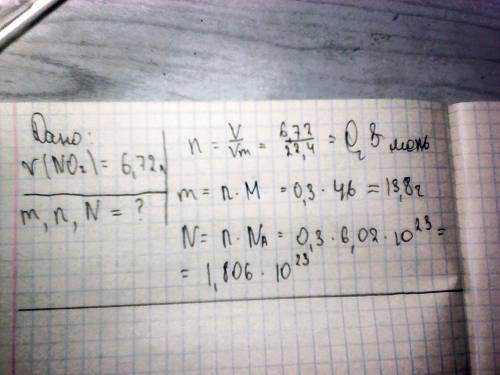 Дано:
V(NO₂) = 6,72л
m, n, N = ?
n = V/Vm = 6,72/22,4 = 0,3 моль
m = n · M = 0,3 · 46 = 13,8г
N = n · NA = 0,3 · 6,02 · 10²³ =
= 1,806 · 10²³